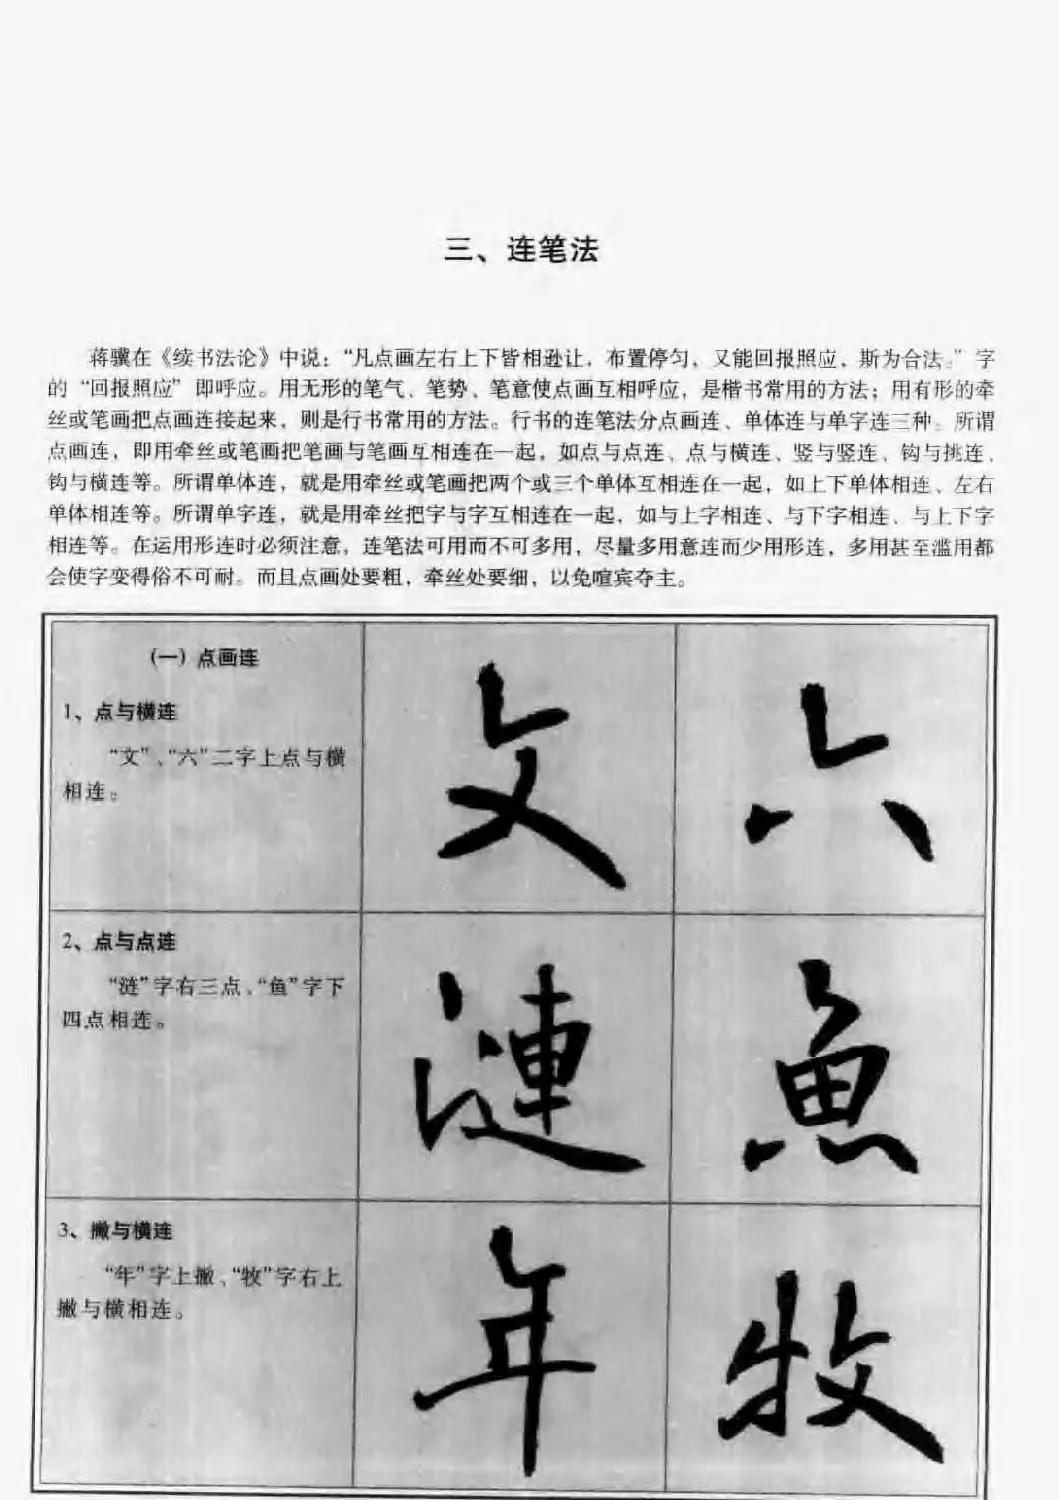 三、连笔法
蒋骥在《续书法论》中说：“凡点画左右上下皆相逊让，布置停匀，又能回报照应，斯为合法。”字
的“回报照应”即呼应。用无形的笔气、笔势、笔意使点画互相呼应，是楷书常用的方法；用有形的牵
丝或笔画把点画连接起来，则是行书常用的方法。行书的连笔法分点画连、单体连与单字连三种。所谓
点画连，即用牵丝或笔画把笔画与笔画互相连在一起，如点与点连、点与横连、竖与竖连、钩与挑连、
钩与横连等。所谓单体连，就是用牵丝或笔画把两个或三个单体互相连在一起，如上下单体相连、左右
单体相连等。所谓单字连，就是用牵丝把字与字互相连在一起，如与上字相连、与下字相连、与上下字
相连等。在运用形连时必须注意，连笔法可用而不可多用，尽量多用意连而少用形连，多用甚至滥用都
会使字变得俗不可耐。而且点画处要粗，牵丝处要细，以免喧宾夺主。
（一）点画连
1、点与横连
“文”、“六”二字上点与横
相连。
文 六
2、点与点连
“涟”字右三点、“鱼”字下
四点相连。
漣 魚
3、撇与横连
“年”字上撇、“牧”字右上
撇与横相连。
年 牧